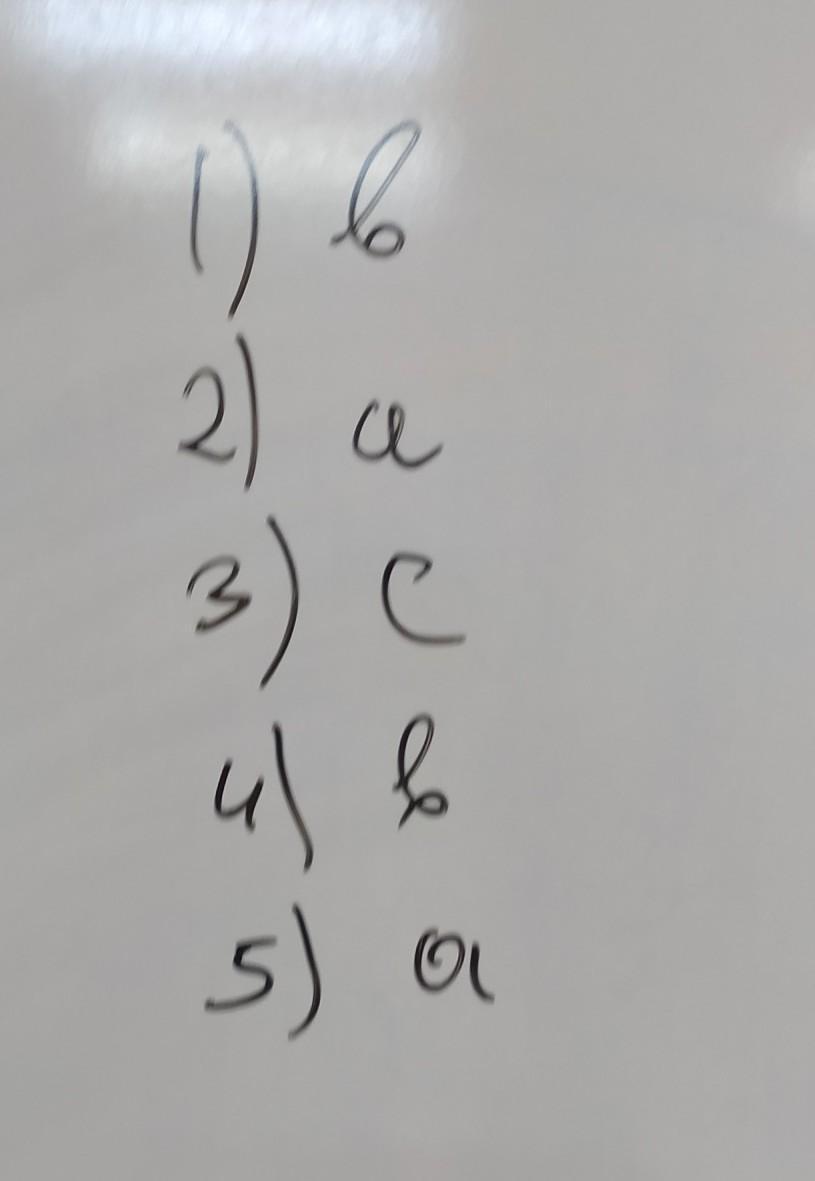 1) b
2) a
3) c
4) b
5) a